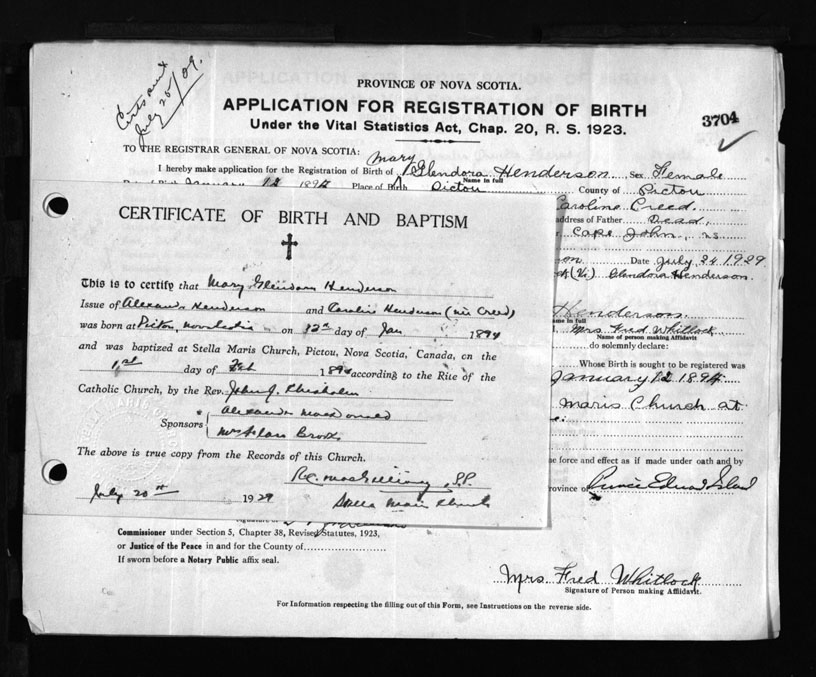 July 20/09.
PROVINCE OF NOVA SCOTIA.
APPLICATION FOR REGISTRATION OF BIRTH
Under the Vital Statistics Act, Chap. 20, R. S. 1923.
3704
TO THE REGISTRAR GENERAL OF NOVA SCOTIA:
I hereby make application for the Registration of Birth of Mary Glendora Henderson Sex Female
Name in full
January 12 1894 Place of Birth Pictou County of Pictou
Caroline Creed
address of Father Dead,
Cape John, NS
Date July 24 1929
Glendora Henderson.
Henderson.
Name in full
Mrs. Fred Whitlock
Name of person making Affidavit
do solemnly declare:
Whose Birth is sought to be registered was
January 12 1894
Maris Church at
force and effect as if made under oath and by
Province of Prince Edward Island
CERTIFICATE OF BIRTH AND BAPTISM
This is to certify that Mary Glendora Henderson
Issue of Alexander Henderson and Caroline Henderson (née Creed)
was born at Pictou, Nova Scotia on 12th day of Jan 1894
and was baptized at Stella Maris Church, Pictou, Nova Scotia, Canada, on the
1st day of Feb 1894 according to the Rite of the
Catholic Church, by the Rev. John J. Chisholm
Sponsors Alexander MacDonald
Mrs Brooks
The above is true copy from the Records of this Church.
R.C. MacGillivray P.P.
July 20th 1929 Stella Maris Church
Commissioner under Section 5, Chapter 38, Revised Statutes, 1923,
or Justice of the Peace in and for the County of
If sworn before a Notary Public affix seal.
Mrs. Fred Whitlock
Signature of Person making Affidavit.
For Information respecting the filling out of this Form, see Instructions on the reverse side.